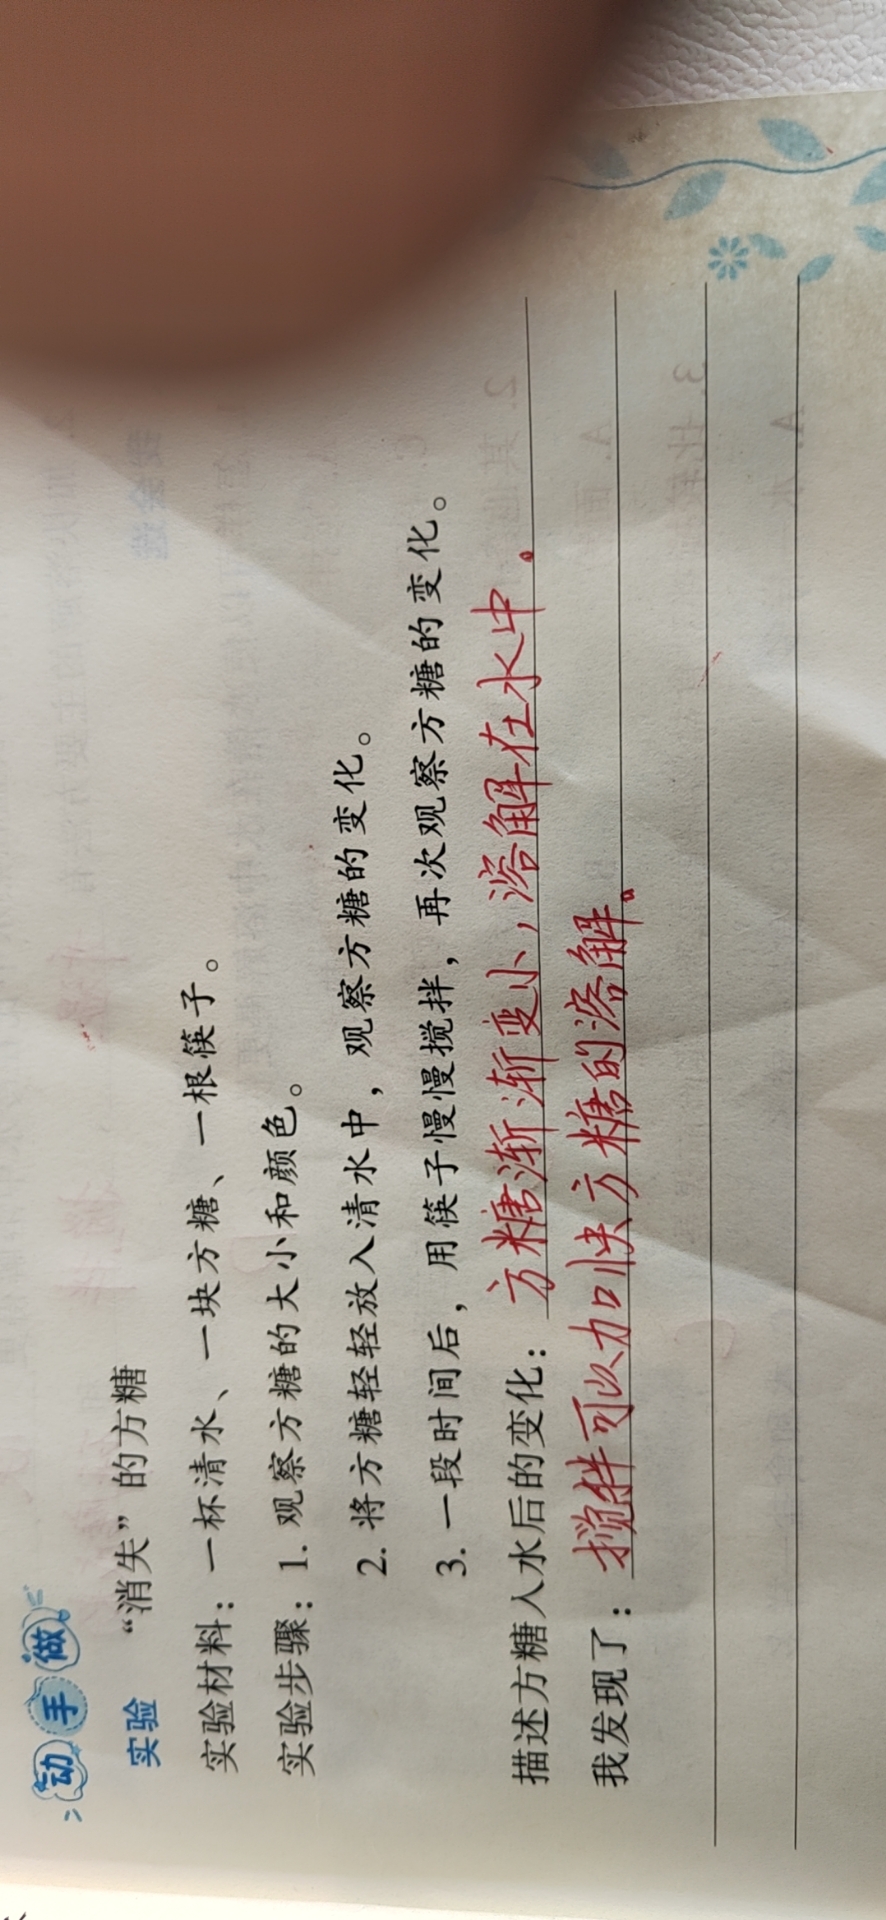 动手做
实验 “消失”的方糖
实验材料：一杯清水、一块方糖、一根筷子。
实验步骤：1. 观察方糖的大小和颜色。
2. 将方糖轻轻放入清水中，观察方糖的变化。
3. 一段时间后，用筷子慢慢搅拌，再次观察方糖的变化。
描述方糖入水后的变化：方糖渐渐变小，溶解在水中。
我发现了：搅拌可以加快方糖的溶解。